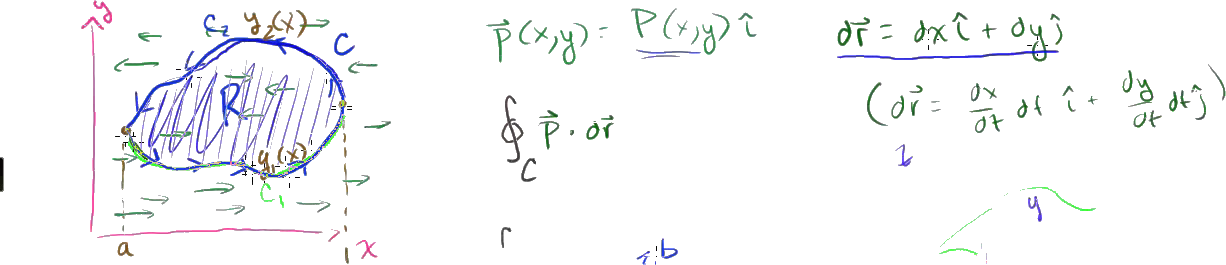 y
C₂ y₂(x) C
R
y₁(x)
C₁
a x
P⃗(x,y) = P(x,y) î
∮ P⃗ · dr⃗
C
b
dr⃗ = dx î + dy ĵ
(dr⃗ = dx/dt dt î + dy/dt dt ĵ)
y